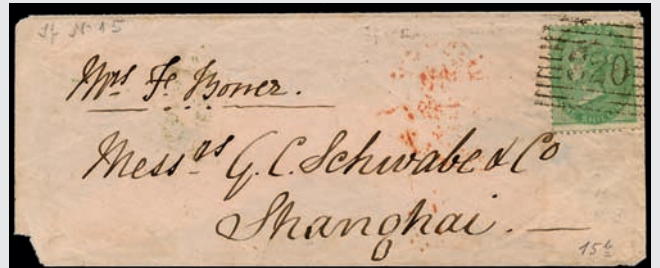 Mrs F. Boner.
Messrs G. C. Schwabe & Co
Shanghai. —
320